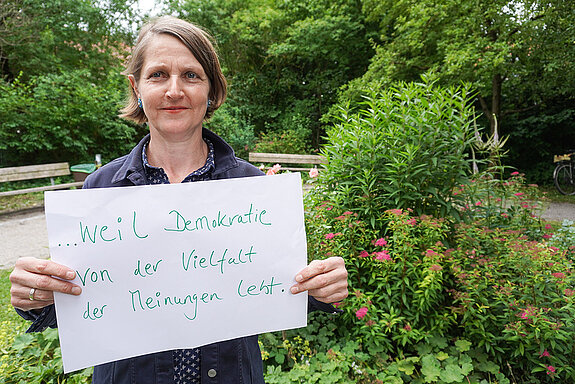 ...weil Demokratie
von der Vielfalt
der Meinungen lebt.